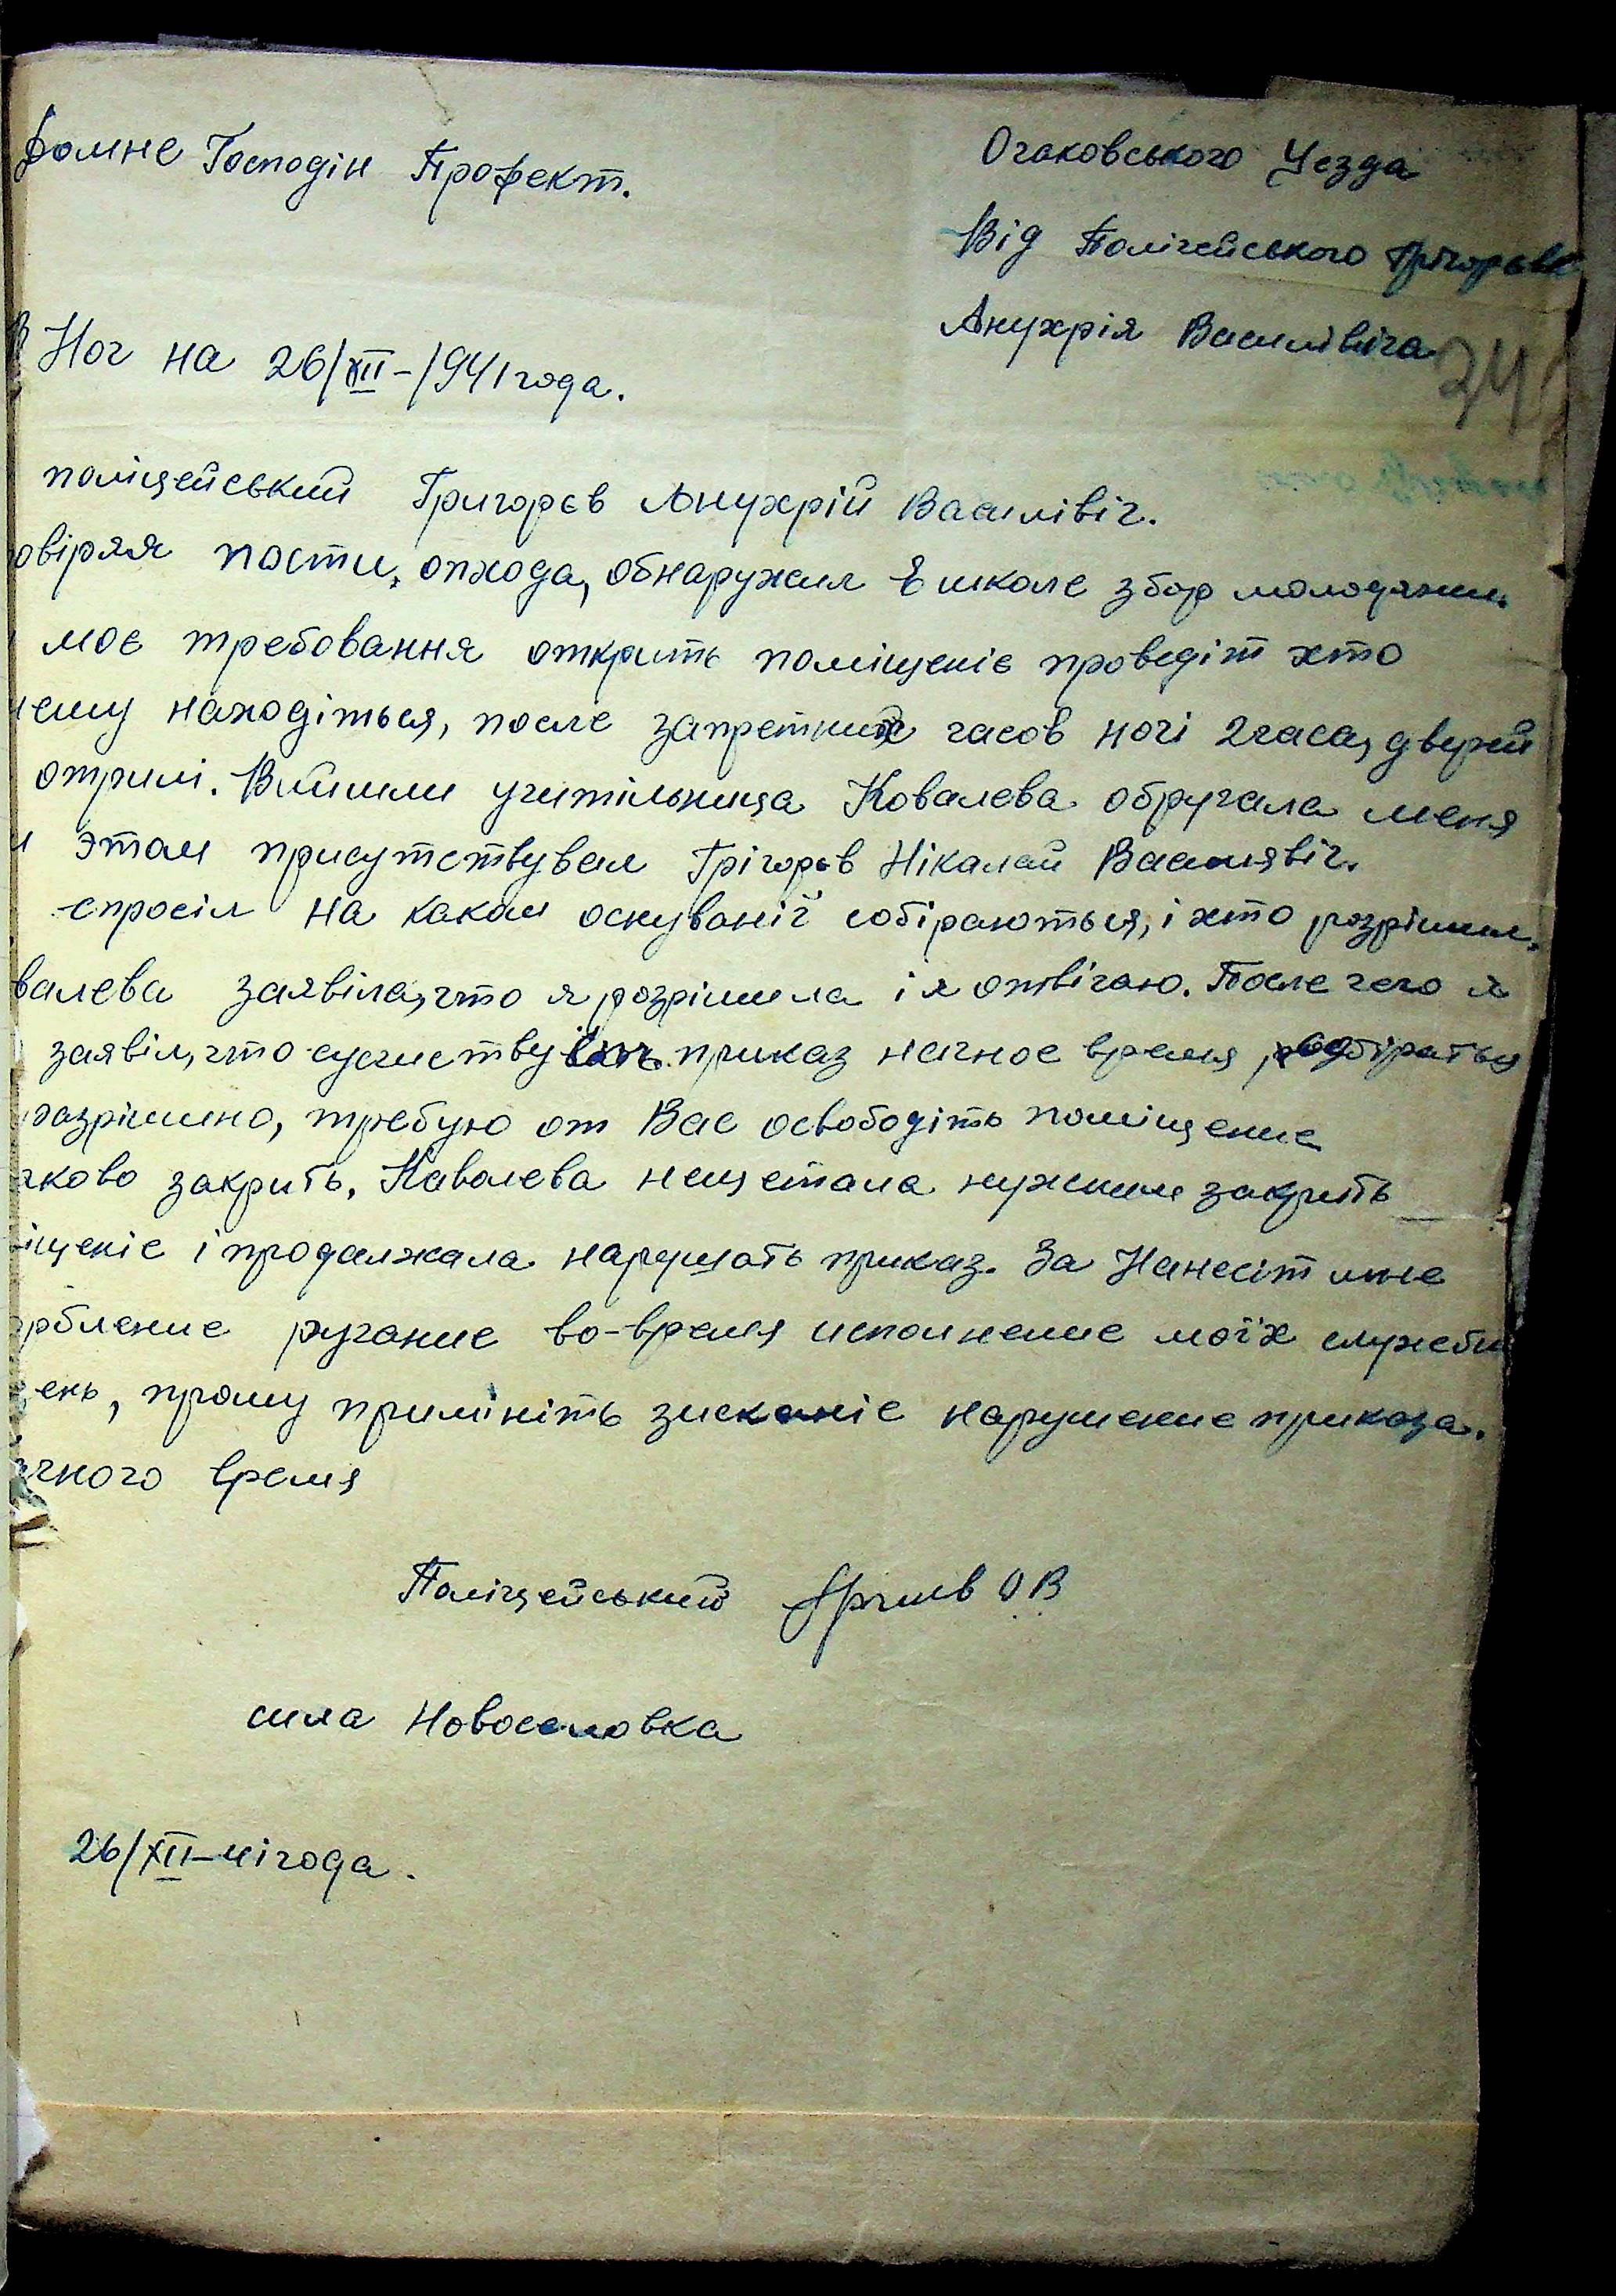 Домне Господін Профект.
Очаковського Уезда
Від Полічейського Грігорьєв
Анухрія Василівіча
24
В Ноч на 26/XII-1941 года.
поліцейський Григорєв Анухрій Василівіч.
овіряя пости, опхода, обнаружил в школе збор молодяжи.
моє требовання открить поміщеніє проведіт хто
чему находіться, после запретних часов ночі 2 часа, дверей
отрилі. Вийшли учитільница Ковалева обругала меня
и этом присутствувал Грігорєв Нікалай Василявіч.
спросіл на каком оснуванії собіраються, і хто розрішил.
валева заявіла, что я розрішила і я отвічаю. После чего я
заявіл, что сушиствувать приказ начное время, собіраться
разрішино, требую от Вас освободіть поміщение
аково закрить. Кавалева нещетала нужним закрить
іщеніє і продалжала нарушать приказ. За Нанесіт мне
рбление ругание во-время исполнение моїх службы
ень, прошу примініть зисканіе нарушение приказа.
чного время
Поліцейський О В
сила Новоселовка
26/XII-41 года.